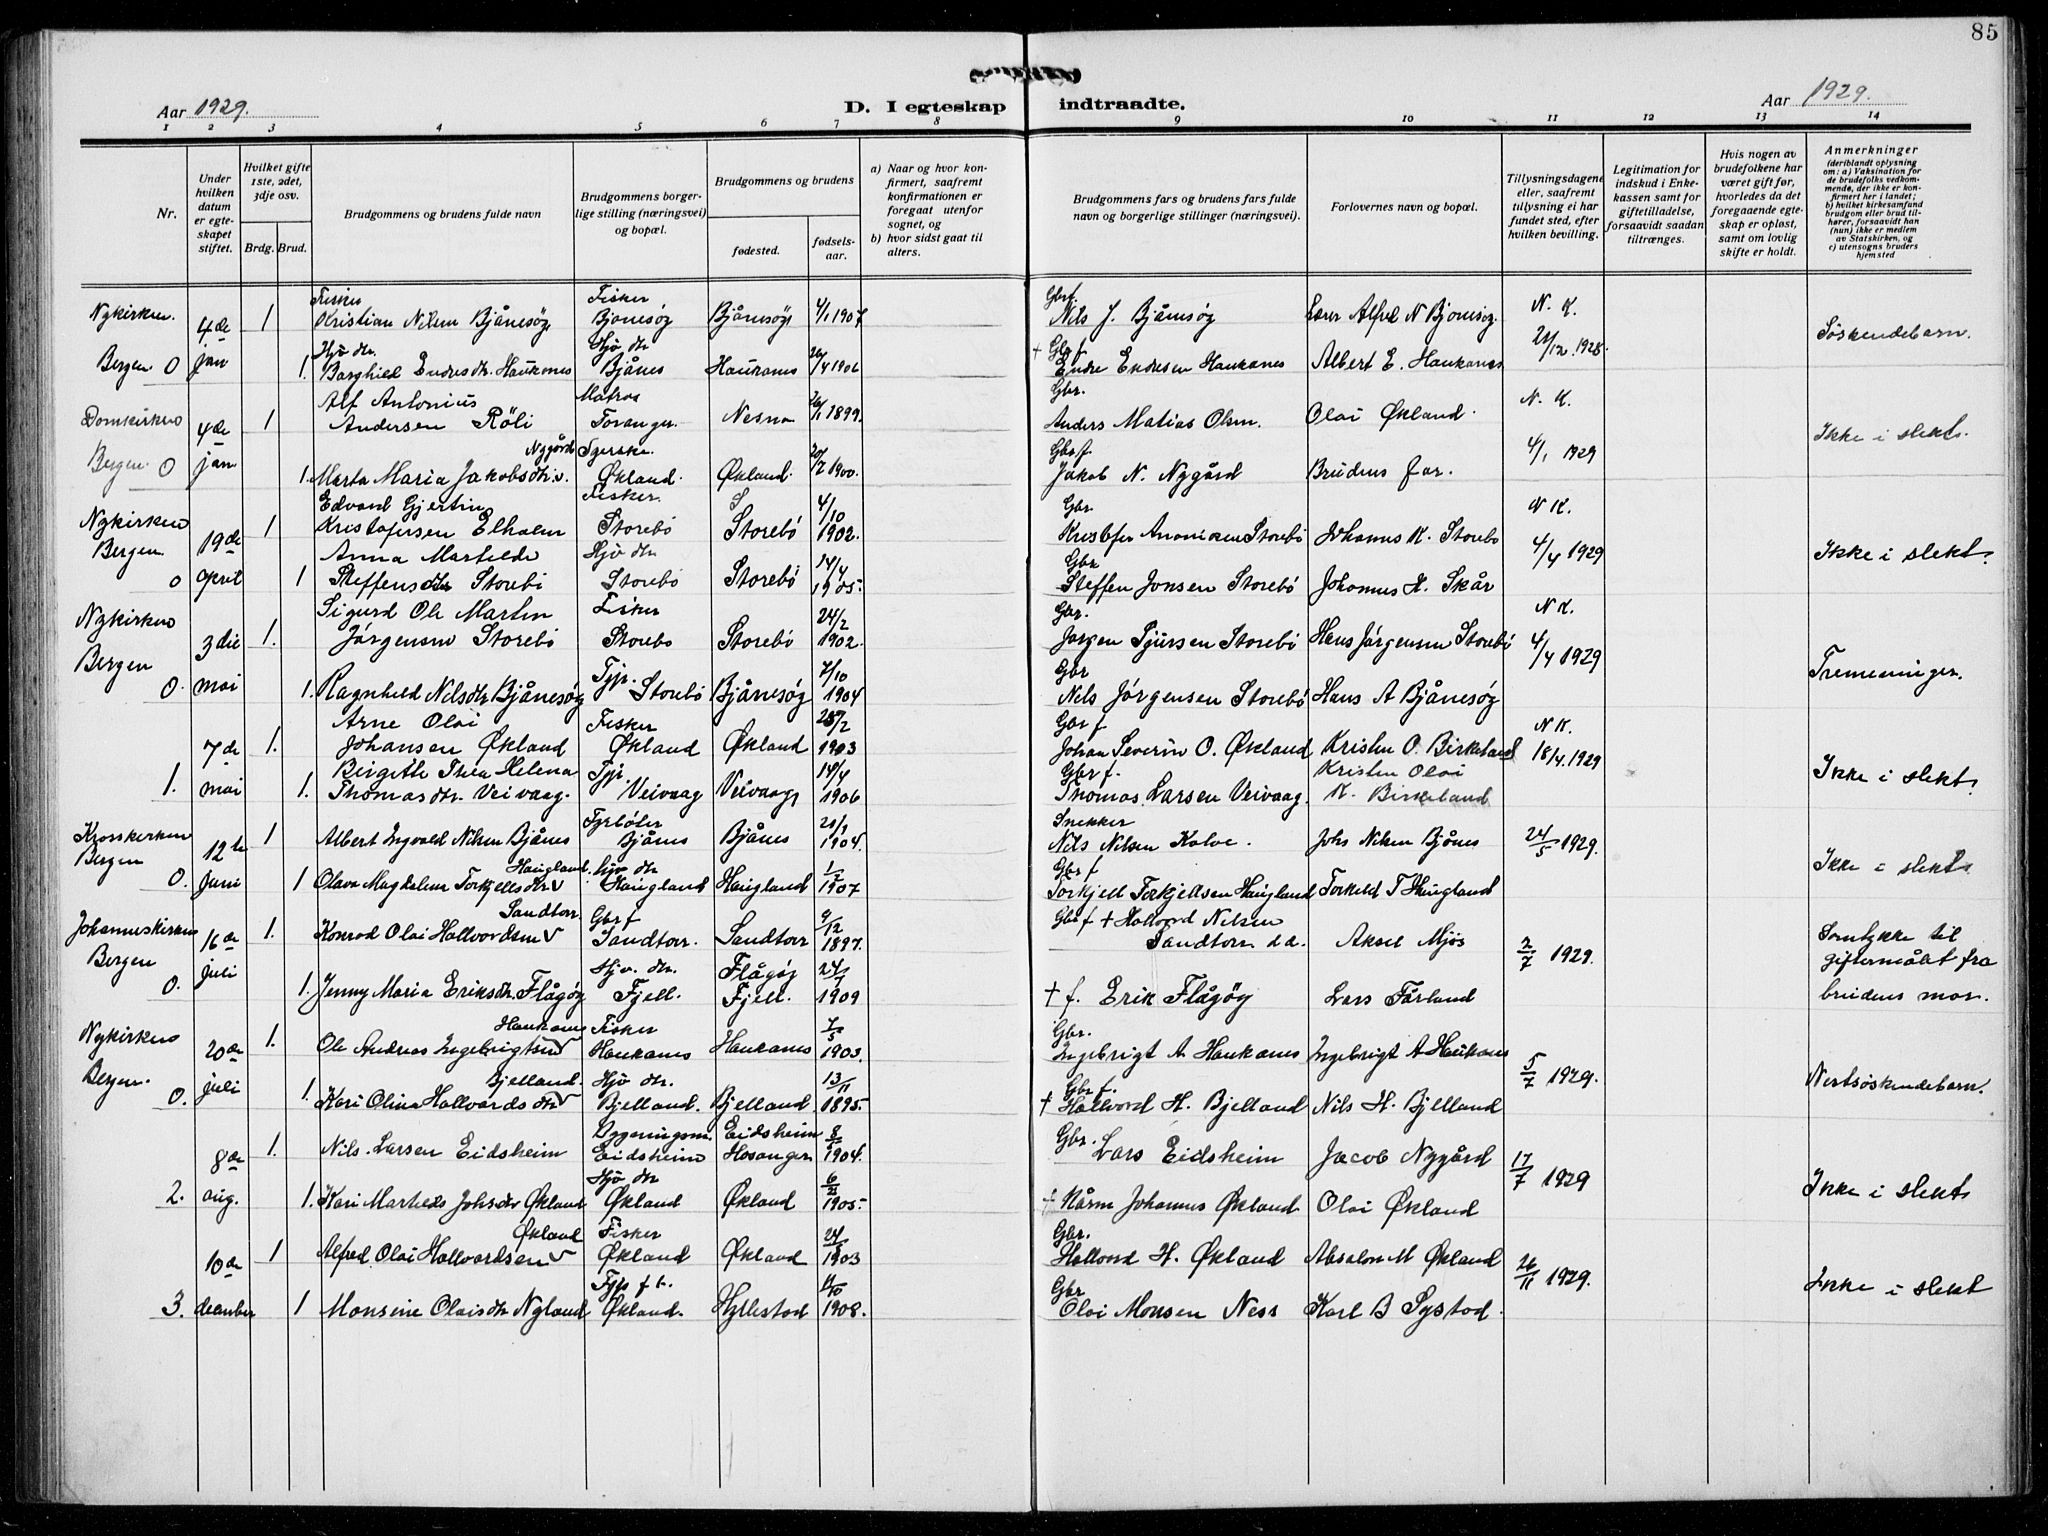 85
Aar 1929.
D. I egteskap indtraadte.
Aar 1929.
1 2 3 4 5 6 7 8 9 10 11 12 13 14
Nr.
Under hvilken datum er egteskapet stiftet.
Hvilket gifte 1ste, 2det, 3dje osv.
Brdg. Brud.
Brudgommens og brudens fulde navn
Brudgommens borgerlige stilling (næringsvei) og bopæl.
Brudgommens og brudens
fødested.
fødselsaar.
a) Naar og hvor konfirmert, saafremt konfirmationen er foregaat utenfor sognet, og
b) hvor sidst gaat til alters.
Brudgommens fars og brudens fars fulde navn og borgerlige stillinger (næringsvei).
Forlovernes navn og bopæl.
Tillysningsdagene eller, saafremt tillysning ei har fundet sted, efter hvilken bevilling.
Legitimation for indskud i Enkekassen samt for giftetilladelse, forsaavidt saadan tiltrænges.
Hvis nogen av brudefolkene har været gift før, hvorledes da det foregaaende egteskap er opløst, samt om lovlig skifte er holdt.
Anmerkninger
(deriblandt oplysning om: a) Vaksination for de brudefolks vedkommende, der ikke er konfirmert her i landet; b) hvilket kirkesamfund brudgom eller brud tilhører, forsaavidt han (hun) ikke er medlem av Statskirken, og c) utensogns bruders hjemsted
Fisker Fisker Gbrf. N. K.
Nykirken. 4de 1 Kristian Nilsen Bjånesøy Bjånesøy Bjånesøy 4/1 1907 Nils J. Bjånesøy Lærer Alfred N Bjonesøy
Søskendebarn.
Hjv dtr. Hjv dtr + Gbr f 21/12.1928.
Bergen 0 jan 1. Borghild Endresdtr. Haukanes Bjånes Haukanes 26/4 1906 Endre Endresen Haukanes Albert E. Haukanes
Alf Antonius Matros Gbr. N. K.
Domkirken 4de 1 Andersen Röli Toranger. Nesna 26/1 1899. Anders Matias Olsen. Olai Økland.
Ikke i slekt.
Nygård Syerske. Gbr f. 4/1 1929
Bergen. 0 jan 1. Marta Maria Jakobsdtr. v. Økland. Økland. 20/7 1900. Jakob N. Nygård Brudens far.
Edvard Gjertin Fisker. 4/10 Gbr. N K.
Nykirken 19de 1 Kristofersen Elholm Storebö Storebö 1902. Johannes K. Storebö
4/4 1929 Ikke i slekt.
Anna Martilde Hjv dtr 14/4 Gbr
Bergen. 0 april 1 Steffensdtr Storebö Storebö Storebö 1905. Steffen Jonsen Storebö Johannes H. Skår
Sigurd Ole Martin Fisker 24/2 Gbr. N K.
Nykirken 3die 1. Jørgensen Storebö Storebö Storebö 1902. Jørgen Sjursen Storebö Hans Jörgensen Storebö
4/4 1929 Tremeninger.
Tjp. 7/10 Gbr
Bergen 0. mai 1. Ragnhild Nilsdtr Bjånesøy Storebö Bjånesøy 1904 Nils Jørgensen Storebö Hans A Bjånesøy
Arne Olai Fisker 28/2 Gbr f N K.
7de 1. Johansen Økland Økland Økland 1903 Johan Severin O. Økland Kristen O. Birkeland 18/4.1929
Birgitte Thea Helena Tjp. 14/4 Gbr f. Kristen Olai
Ikke i slekt.
1. mai 1. Thomasdtr. Veivaag. Veivaag Veivaag 1906 Thomas Larsen Veivaag. K. Birkeland
Fyrböter 21/1 Snekker
Krosskirken Bergen 12te 1 Albert Ingvald Nilsen Bjånes Bjånes Bjånes 1904. Nils Nilsen Kalve. Johs Nilsen Bjånes 24/5 1929.
Haugland. hjv dtr 1/7 Gbr f Ikke i slekt.
0. juni 1 Olava Magdalena Torkjellsdtr v Haugland Haugland 1907 Torkjell Torkjellsen Haugland Torkeld T Haugland
Sandtorr. Gbr f 9/12 Gbr f + Hallvord Nilsen
Johanneskirken 16de 1. Konrad Olai Hallvordsen v Sandtorr. Sandtorr 1897. Sandtorr d.a. Aksel Mjös
2/7 1929. Samtykke til giftermålet fra brudens mor.
Hjv. dtr. Flågøy 24/7
Bergen 0. juli 1. Jenny Maria Eriksdtr. Flågøy Fjell. Fjell. 1909 + f. Erik Flågøy Lars Färland
Haukanes Fisker 7/5 Gbr.
Nykirken 20de 1. Ole Andreas Ingebrigtsen v Haukanes Haukanes 1903. Ingebrigt A Haukanes Ingebrigt A Haukanes
5/7 1929. Nestsøskendebarn.
Bjelland. Hjv dtr. 13/11 Gbr f.
Bergen. 0. juli 1. Kari Olina Hallvardsdtr v Bjelland. Bjelland. 1895. + Hallvord H. Bjelland Nils H. Bjelland
Byggningsm. Eidsheim 8/5 Gbr.
8de 1. Nils Larsen Eidsheim Eidsheim Hosanger 1904. Lars Eidsheim Jacob Nygård
17/7 1929 Ikke i slekt
Hjv dtr 6/2
2. aug. 1. Kari Martheds Johsdtr Økland Økland Økland 1905. + Johannes Økland Olai Økland
Økland Fisker Gbr.
10de 1 Alfred Olai Hallvordsen v Økland Økland 1903 Hallvord H. Økland Absalon M Økland
26/11 1929. Ikke i slekt
Gbr
3. desember 1 Monsine Olaisdtr Nyland Økland. Hyllestad 1908. Olai Monsen Ness Karl B Systad.